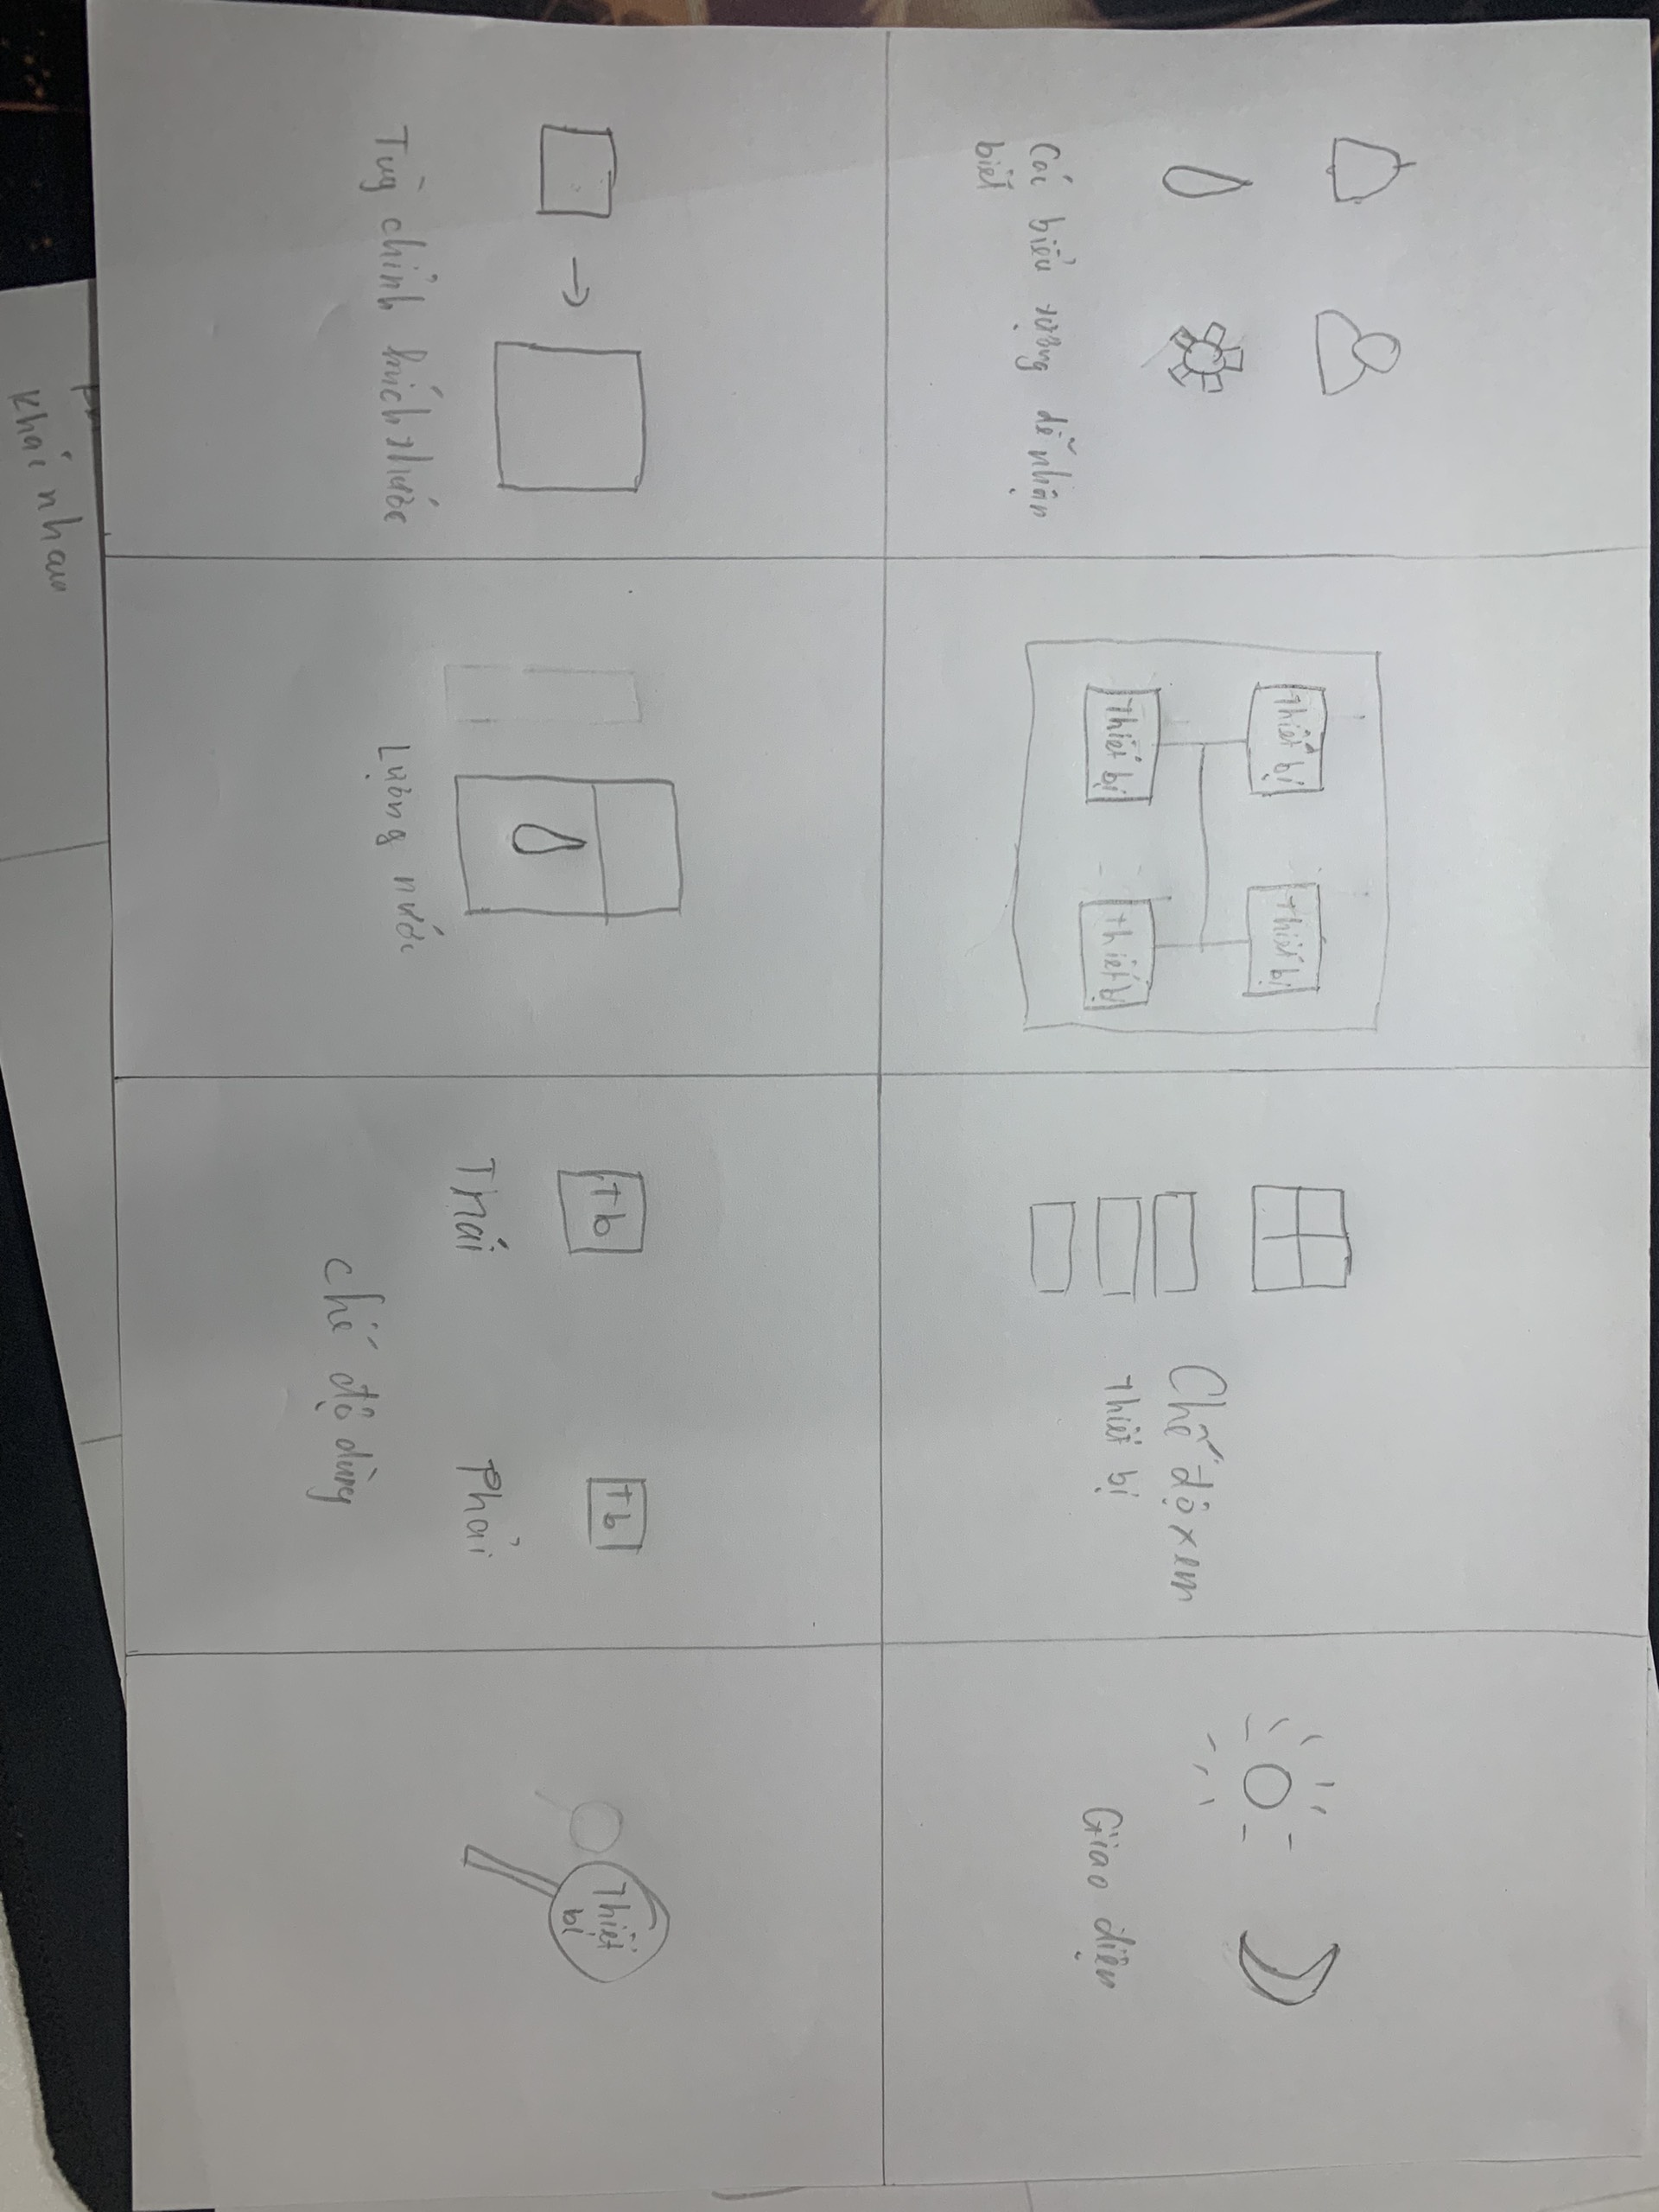 Các biểu tượng dễ nhận
biết
Thiết bị
Thiết bị
Thiết bị
Thiết bị
Chế độ xem
Thiết bị
Giao diện
Tùy chỉnh kích thước
Lượng nước
Tb
Tb
Thái
Phải
Chế độ dùng
Thiết
bị
khác nhau